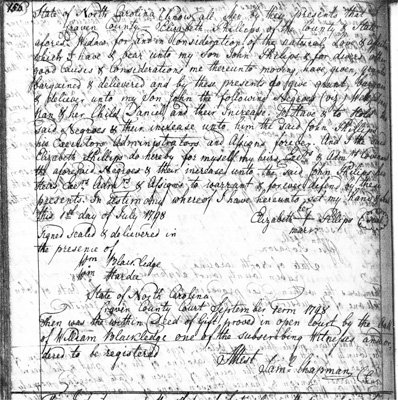 150
State of North Carolina } Know all Men by these presents that
Craven County } Elizabeth Phillips of the County & State
aforesd Widow for and in Consideration of the natural Love &
which I have & bear unto my Son John Phillips & for divers
good Causes & Considerations me thereunto moving have given, granted
bargained & delivered and by these presents do give grant, bargain
& deliver unto my Son John the following Negroes (viz)
& her Child Daniel and their Increase To have & to Hold the
said Negroes & their increase unto him the said John Phillips
his Executors Administrators and Assigns forever. And I the said
Elizabeth Phillips do hereby for myself my heirs Exrs & Admrs
the aforesaid Negroes & their increase unto the said John Phillips his
heirs Exrs Admrs & Assigns to warrant & forever defend by these
presents. In testimony whereof I have hereunto set my hand
this 1st day of July 1798
Elizabeth Phillips
mark
Signed sealed & delivered in
the presence of
Wm Blackledge
Wm Hardee
State of North Carolina
Craven County Court September Term 1798
Then was the within Deed of Gift proved in open court by the Oath
of William Blackledge one of the subscribing Witnesses and or
dered to be registered
Attest
Saml Chapman, Clk